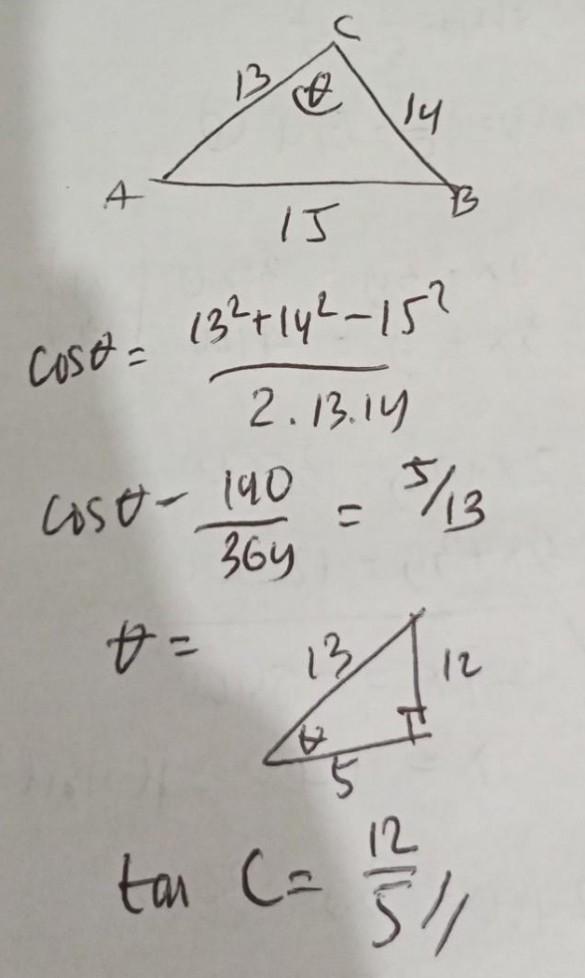 C
13 θ 14
A B
15
cosθ = 13²+14²-15² / 2.13.14
cosθ - 140/364 = 5/13
θ = 13 12
θ
5
tan C = 12/5 //